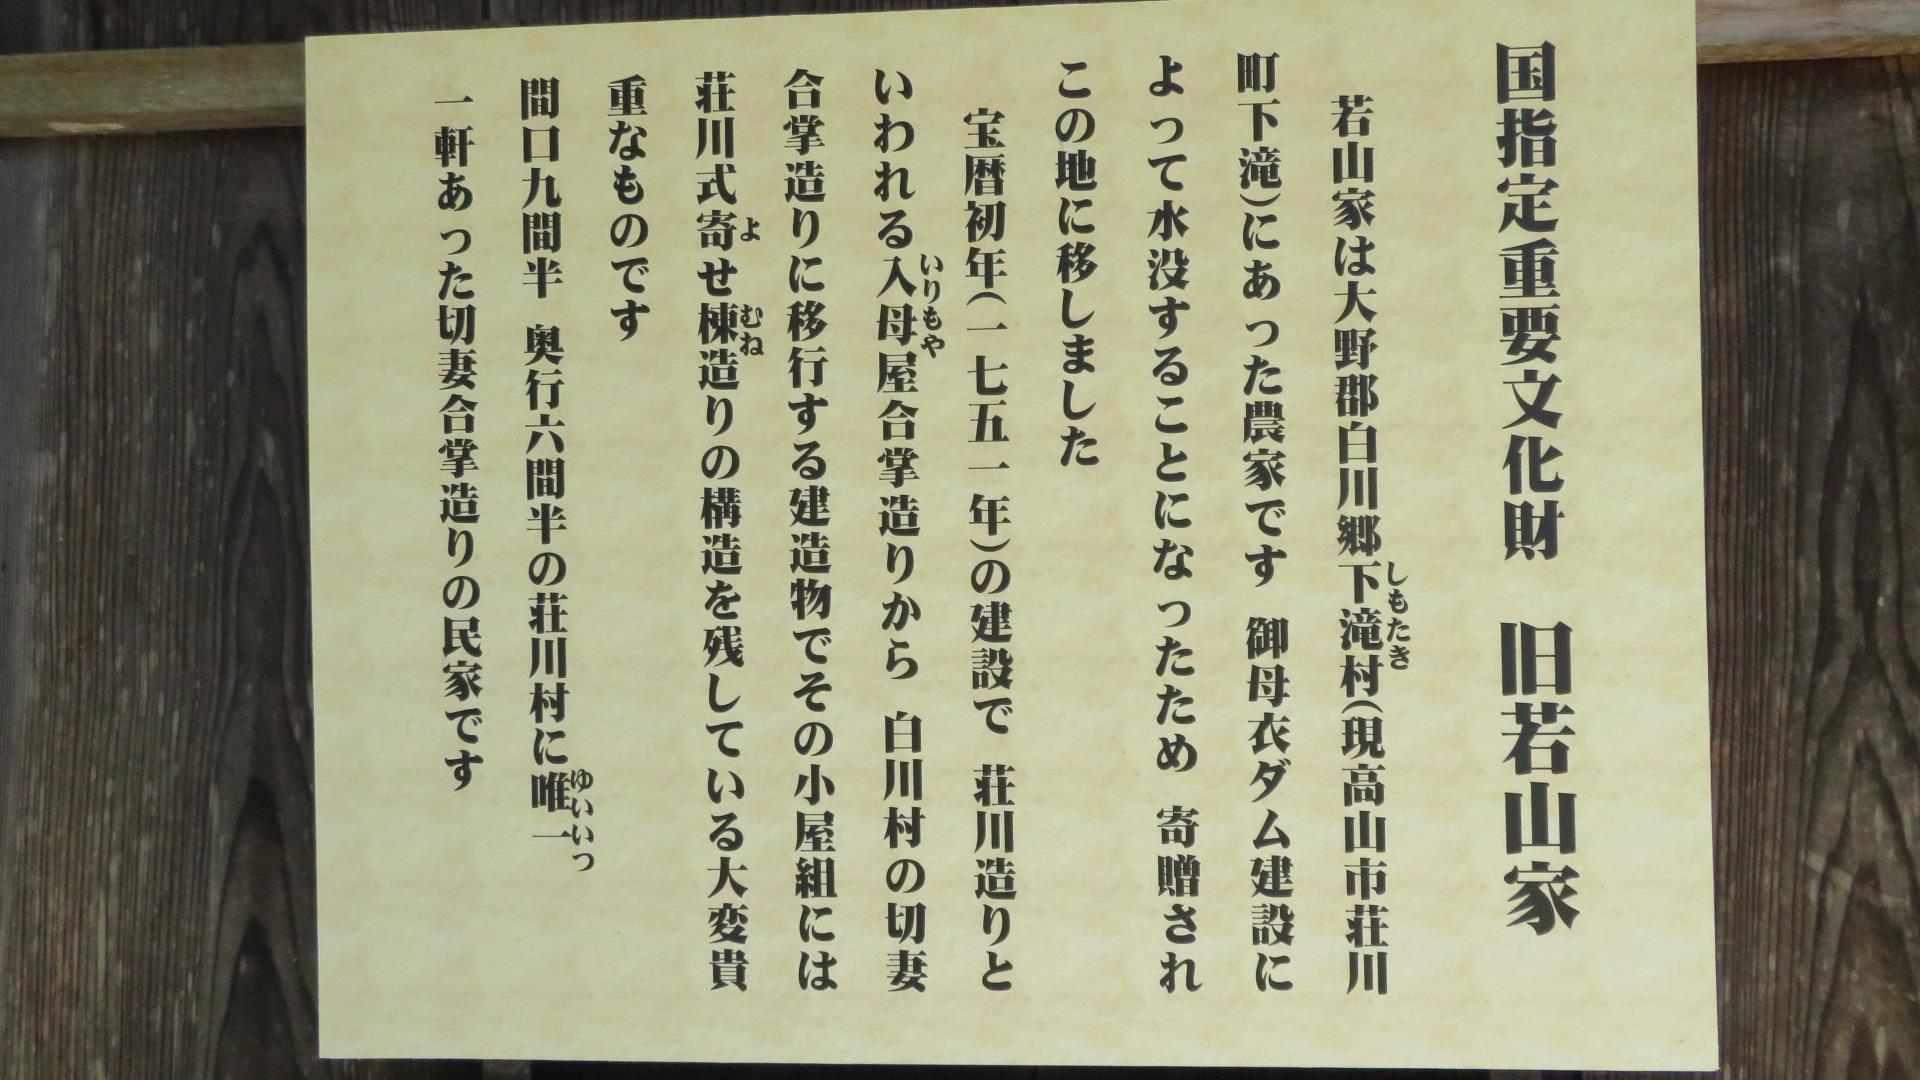 国指定重要文化財　旧若山家
若山家は大野郡白川郷下滝村（現高山市荘川
しもたき
町下滝）にあった農家です　御母衣ダム建設に
よって水没することになったため　寄贈され
この地に移しました
宝暦初年（一七五一年）の建設で　荘川造りと
いわれる入母屋合掌造りから　白川村の切妻
いりもや
合掌造りに移行する建造物でその小屋組には
荘川式寄せ棟造りの構造を残している大変貴
よ　むね
重なものです
間口九間半　奥行六間半の荘川村に唯一
ゆいいつ
一軒あった切妻合掌造りの民家です